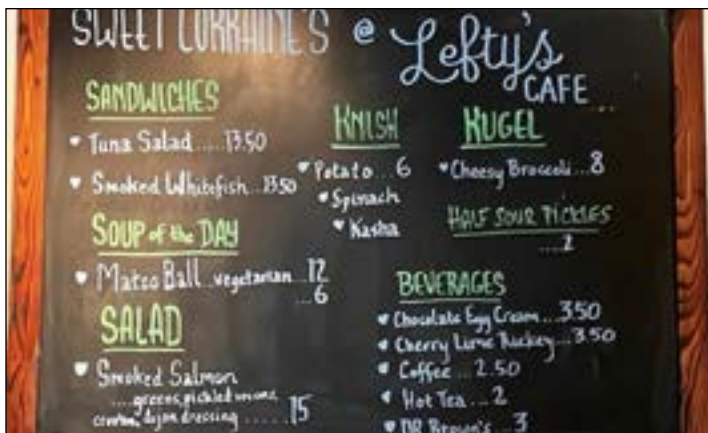 SWEET LORRAINE'S @ Lefty's
CAFE
SANDWICHES
Tuna Salad.....13.50
Smoked Whitefish...13.50
SOUP of the DAY
Matzo Ball...vegetarian...12
...6
SALAD
Smoked Salmon
....greens, pickled onions,
crouton, dijon dressing......15
KNISH
Potato...6
Spinach
Kasha
KUGEL
Cheesy Broccoli...8
HALF SOUR PICKLES
...2
BEVERAGES
Chocolate Egg Cream...3.50
Cherry Lime Rickey....3.50
Coffee...2.50
Hot Tea...2
DR Brown's...3